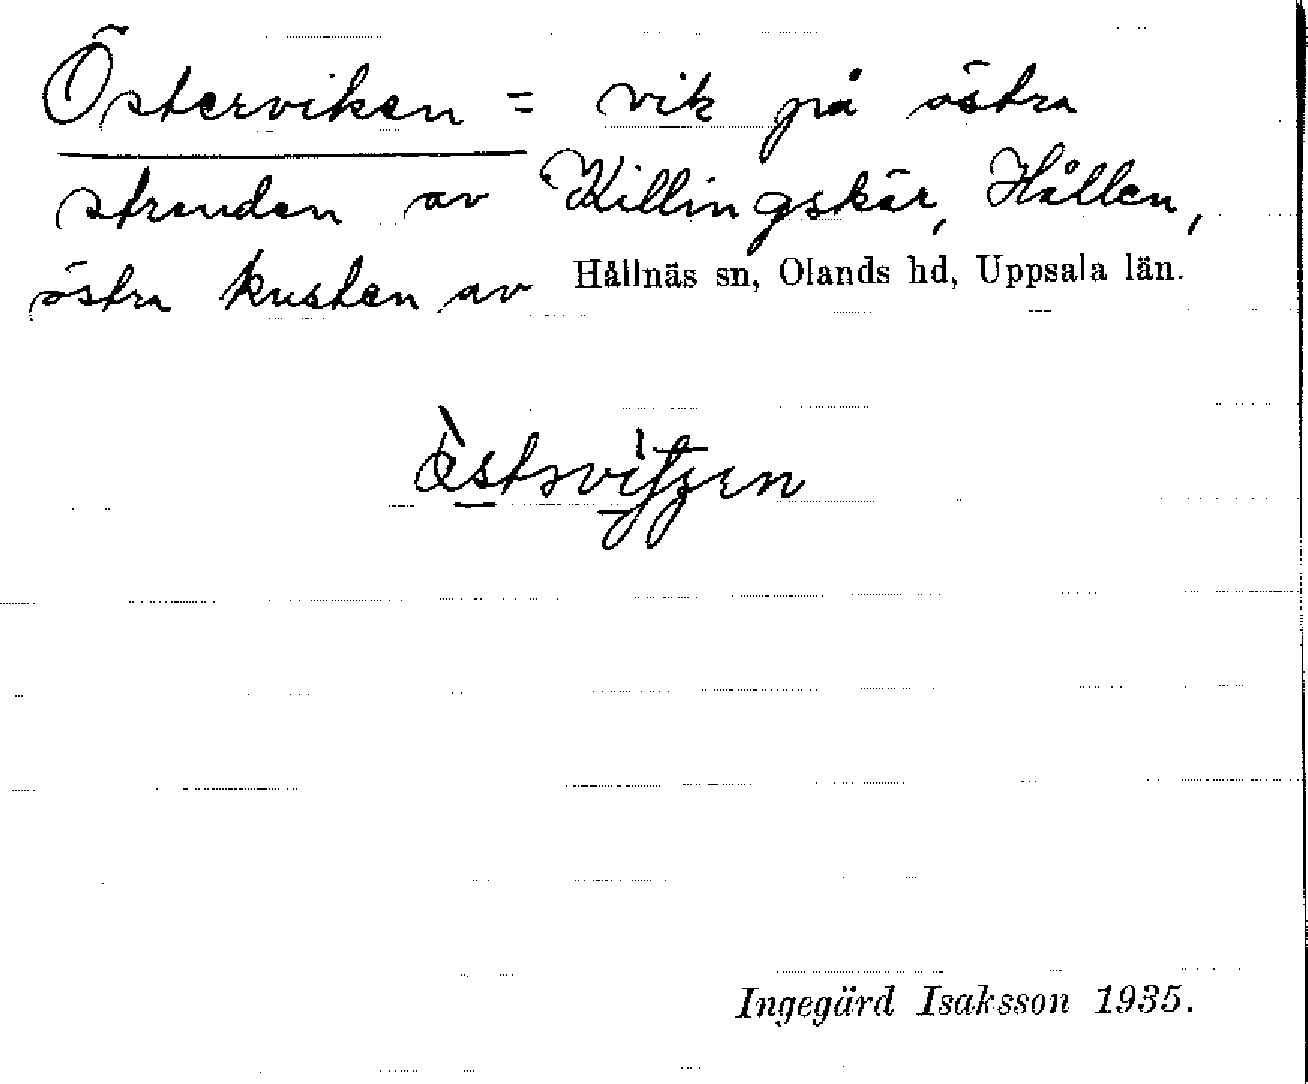 Österviken = vik på östra
stranden av Killingskär, Hållen,
östra kusten av Hållnäs sn, Olands hd, Uppsala län.
Ingegärd Isaksson 1935.